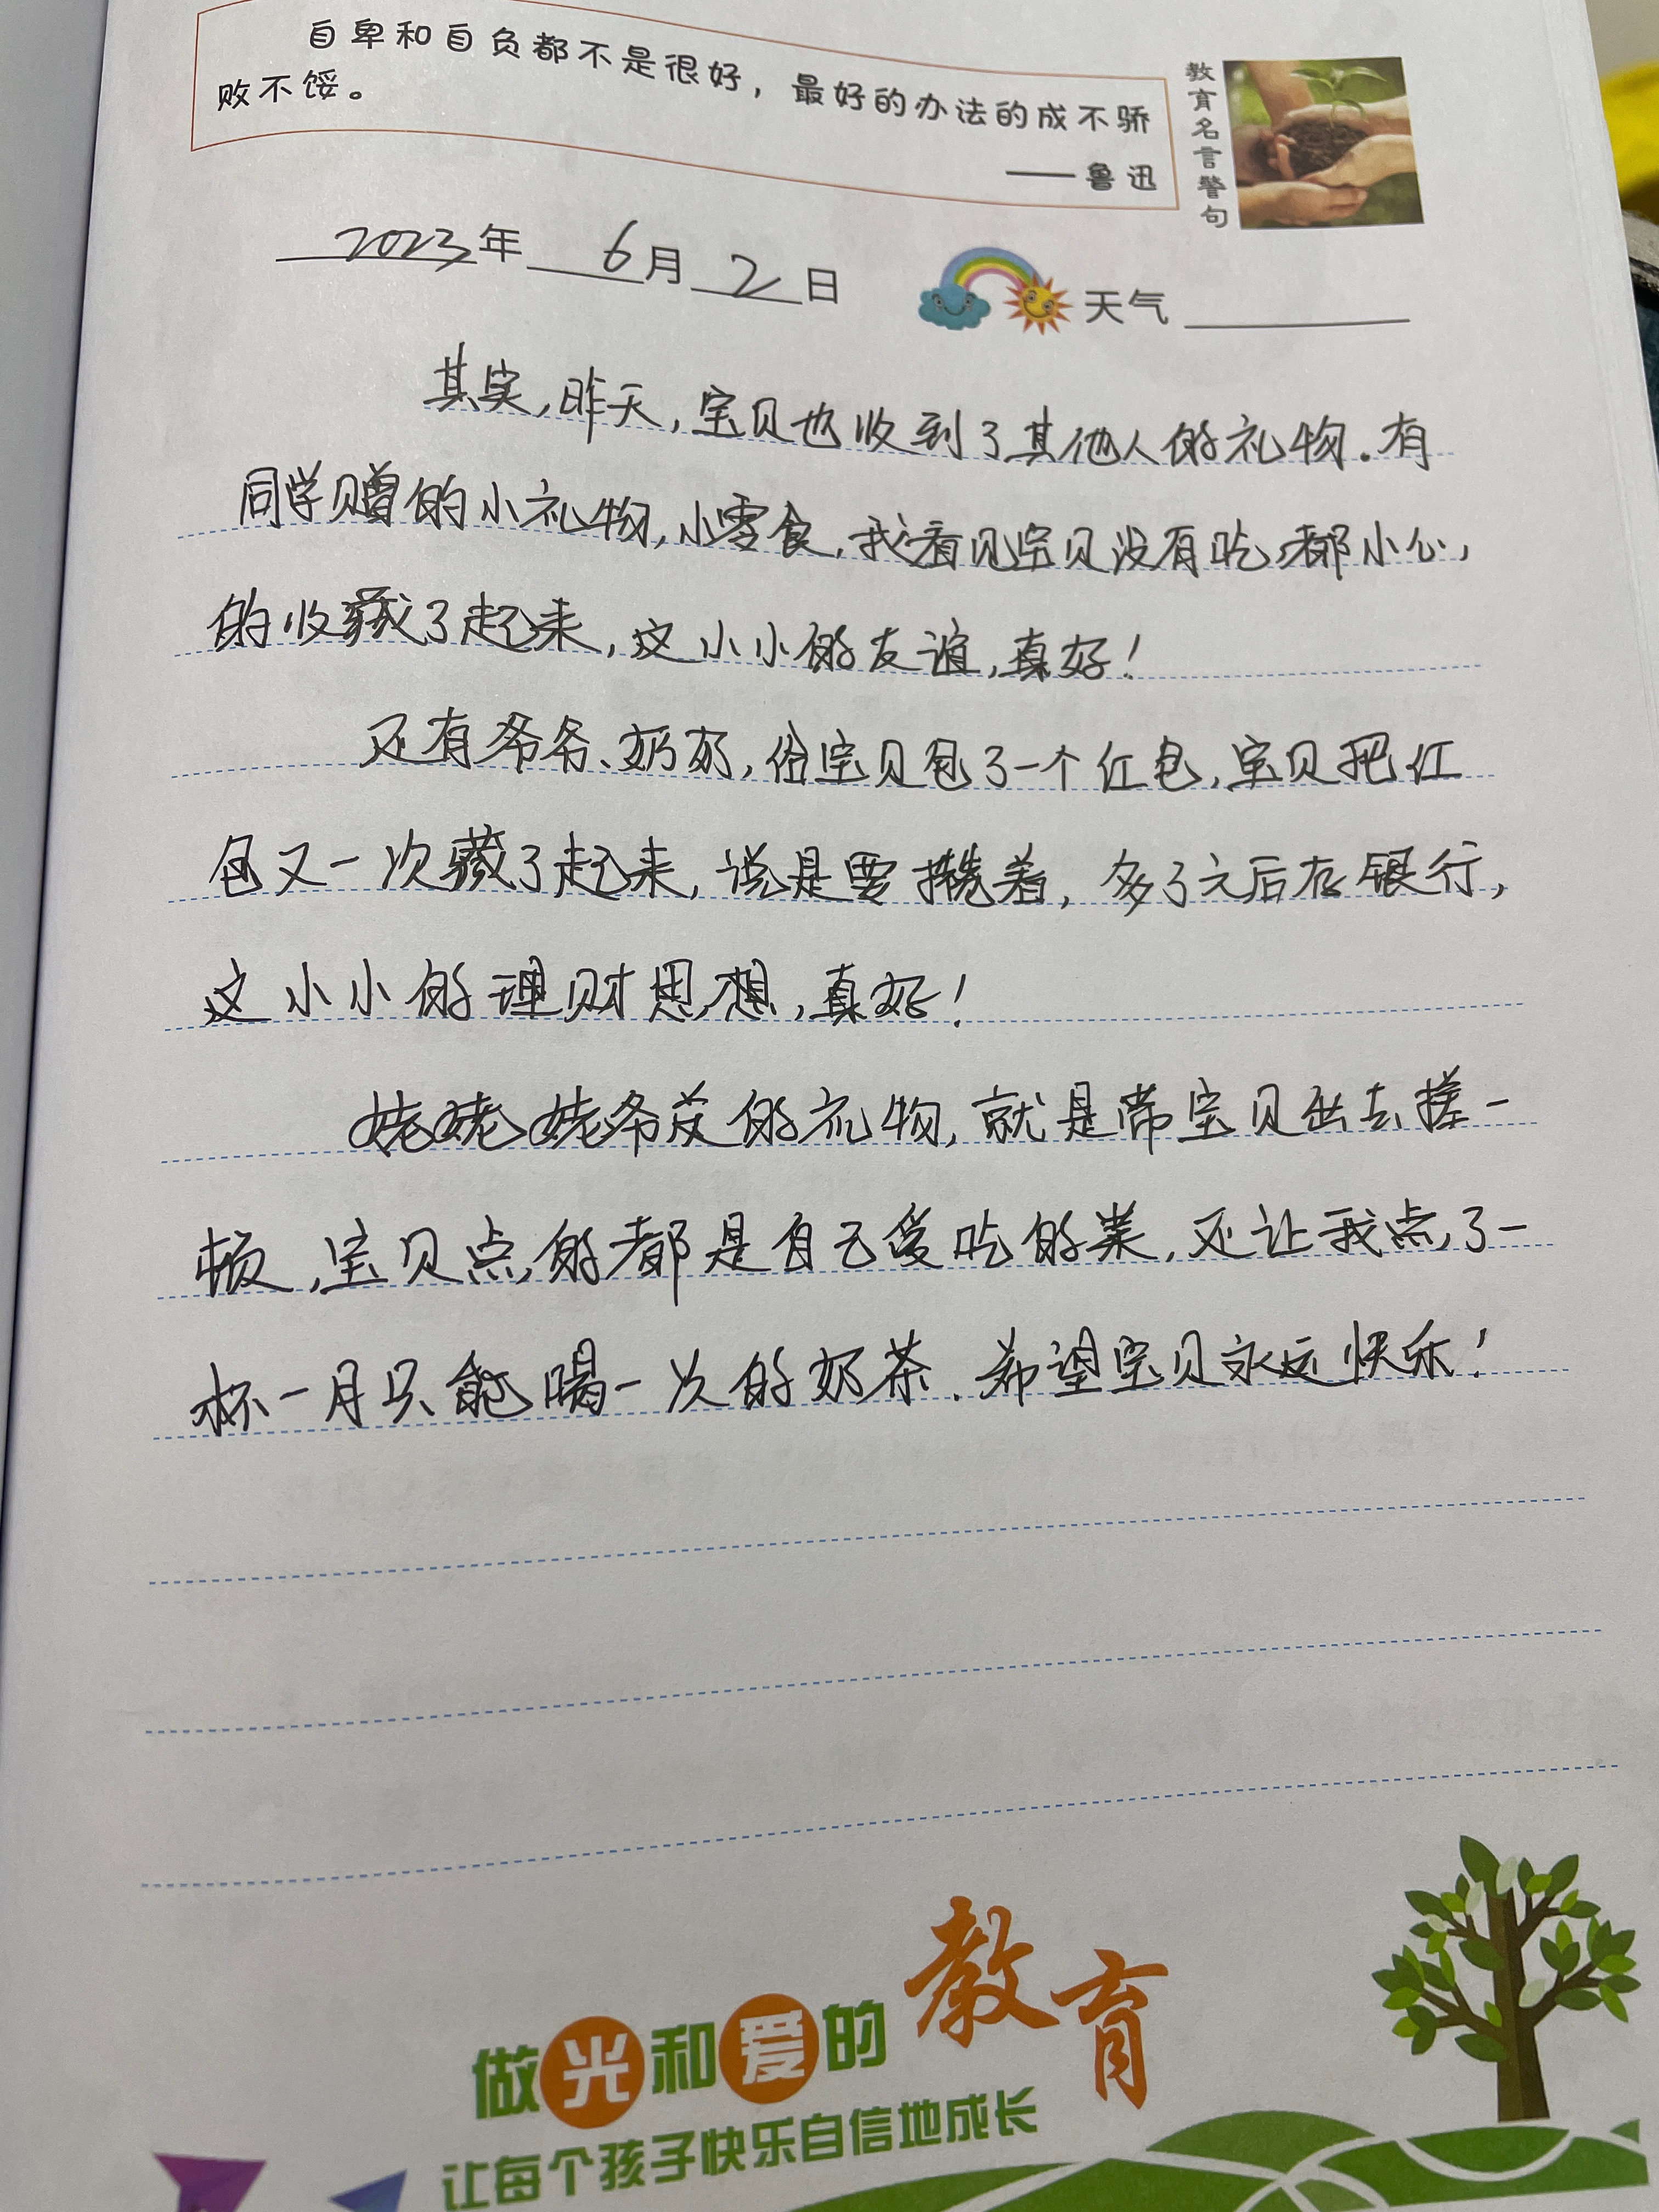 自卑和自负都不是很好，最好的办法的成不骄
败不馁。
——鲁迅
教育名言警句
2023年 6月2日 天气
其实，昨天，宝贝也收到了其他人的礼物.有
同学赠的小礼物,小零食,我看见宝贝没有吃,都小心,
的收藏了起来,这小小的友谊,真好!
还有爷爷、奶奶,给宝贝包了一个红包,宝贝把红
包又一次藏了起来,说是要攒着,多了之后存银行,
这小小的理财思想,真好!
姥姥姥爷的礼物,就是带宝贝出去搓一
顿,宝贝点的都是自己爱吃的菜,还让我点了一
杯一月只能喝一次的奶茶.希望宝贝永远快乐!
做光和爱的教育
让每个孩子快乐自信地成长